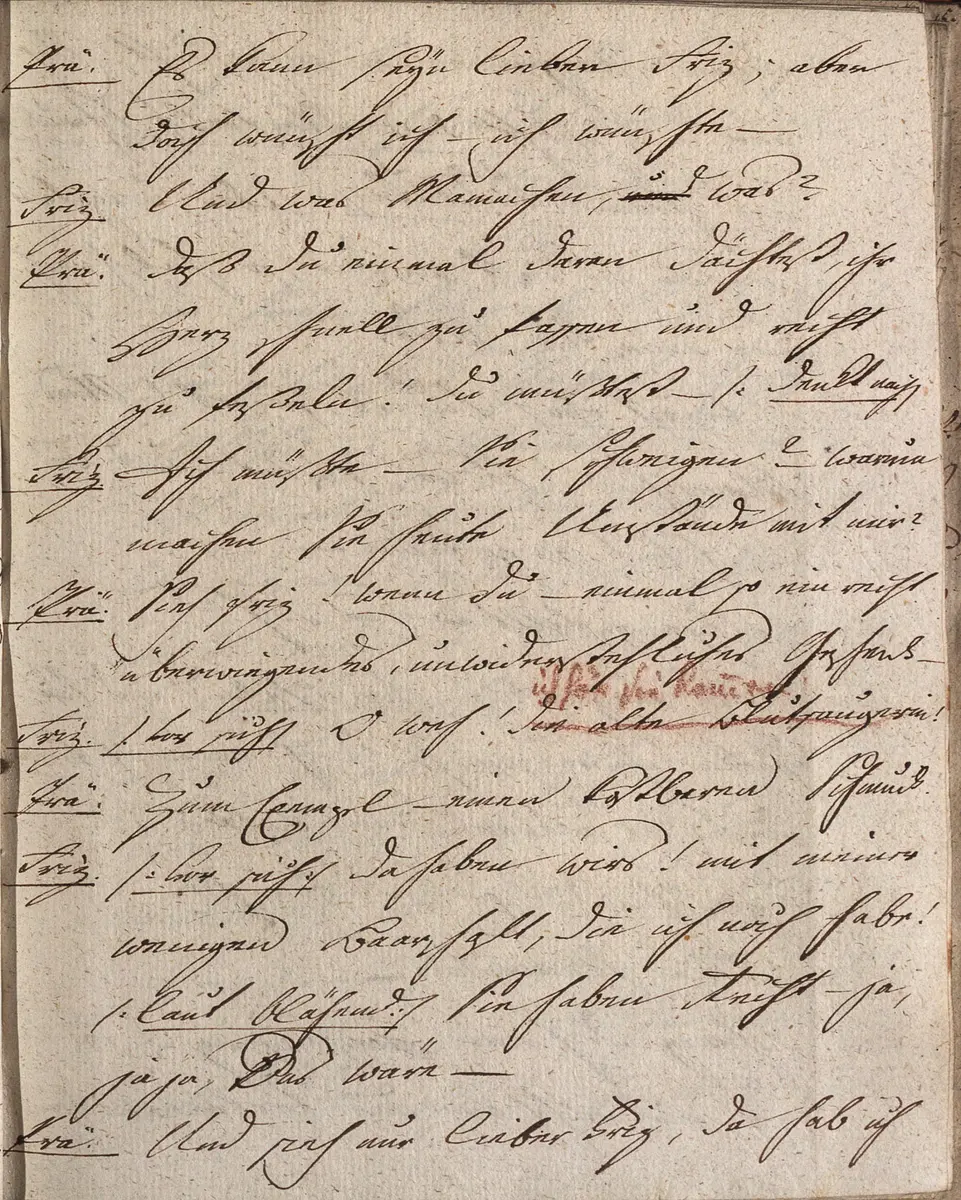 Prä: Es kann seyn lieber Friz; aber
doch wünscht ich – ich wünschte –
Friz Und was Mamachen, und was?
Prä: daß du einmal daran dächtest, ihr
Herz schnell zu fassen und recht
zu feßeln! du müßtest – /: denkt nach
Friz Ich müßte – Sie schweigen? – warum
machen Sie heute Umstände mit mir?
Prä: Sieh Friz! wenn du – einmal so ein recht
überwiegendes, unwiderstehliches Geschenk –
ich
Friz. /: vor sich :/ O weh! die alte Blutsaugerin!
Prä: Zum Exempel – einen kostbaren Schmuck.
Friz. /: vor sich :/ da haben wirs! mit meiner
wenigen Baarschaft, die ich noch habe!
/: laut :/ Sie haben Recht – ja,
ja ja, Das wäre –
Prä: Und sieh nur lieber Friz, da hab ich